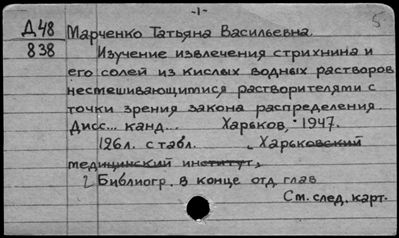 -1-
5
Д48 Марченко Татьяна Васильевна.
838 Изучение извлечения стрихнина и
его солей из кислых водных растворов
несмешивающимися растворителями с
точки зрения закона распределения.
Дисс... канд... Харьков, 1947.
126л. с табл. Харьковский
медицинский институт,
Библиогр. в конце отд. глав
См. след. карт.